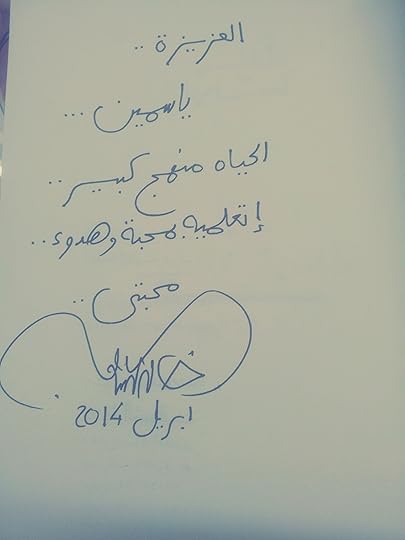 العزيزة ..
ياسمين ...
الحياه منهج كبير ..
إتعلميه بمحبة وهدوء ..
محبتى ..
ابريل 2014